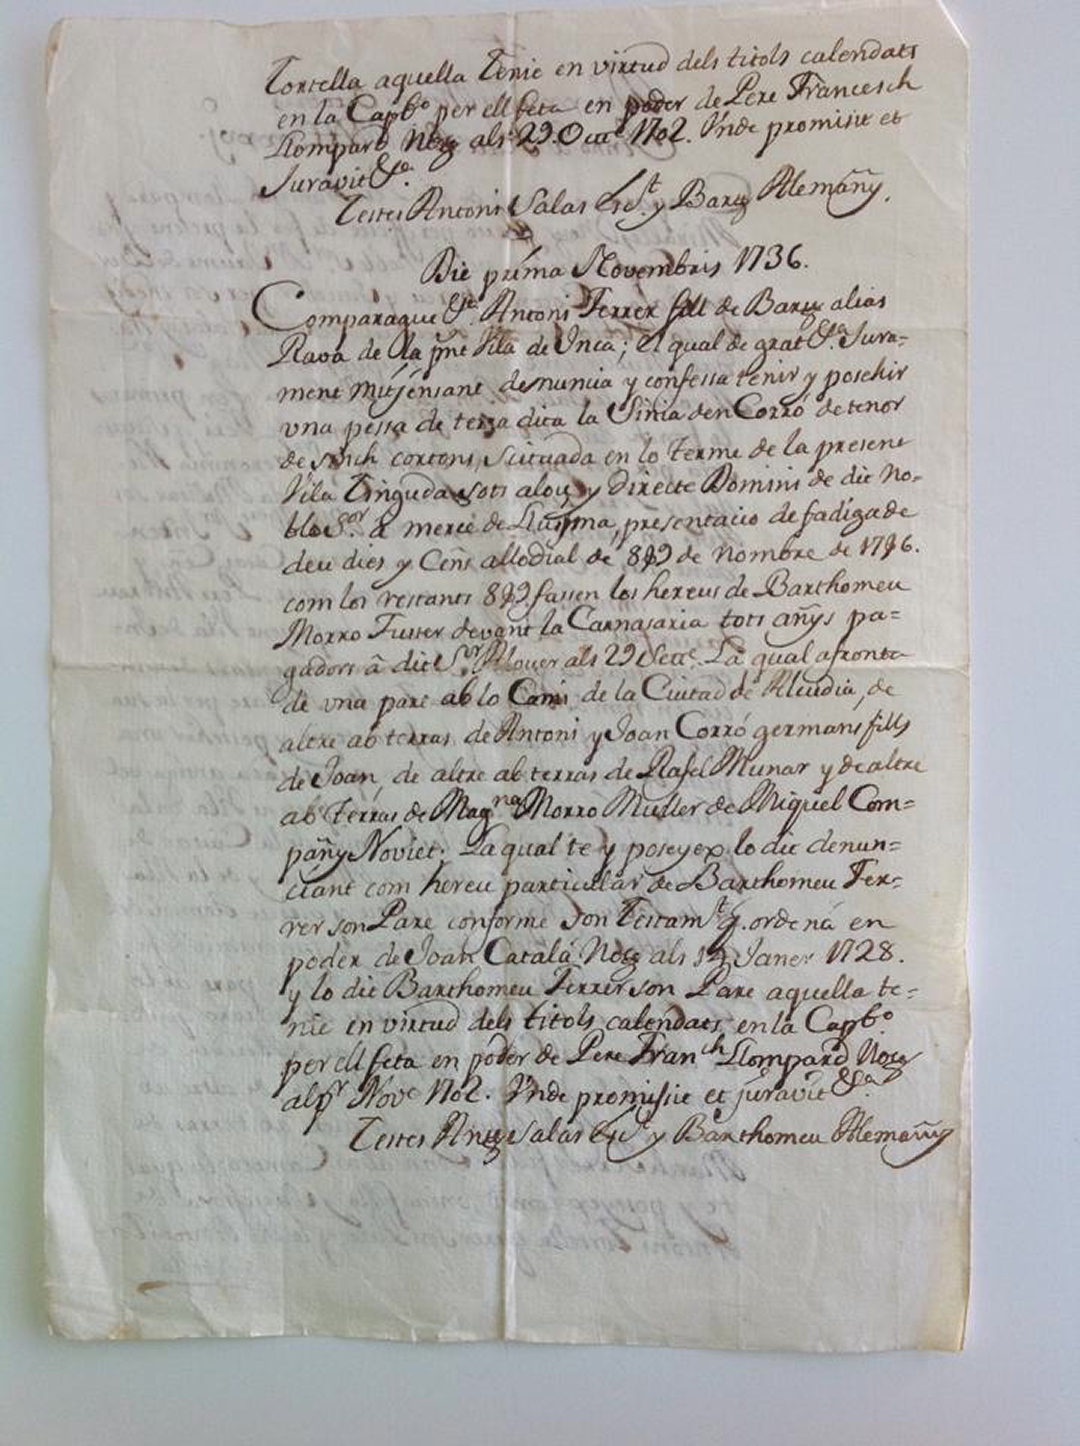 Torrella aquella Tenie en virtud dels titols calendats
en la Capbº per ell feta en poder de Pere Francesch
Llompard Notz als 29. Octe 1702. Vnde promisit et
Juravit &ª.
Testes Antoni Salas Est. y Bary Alemãny.
Die prima Novembris 1736.
Comparague &ª. Antoni Ferrer fill de Bary alias
Rava de la pñt Vila de Inca; el qual de grat &ª. Jura=
ment mitjensant denuncia y confessa tenir y posehir
vna pessa de terra dita la Sinia den Corró de tenor
de sinch cortons, scituada en lo Terme de la present
Vila Tinguda sots alou, y directe Domini de dit No-
ble Sor. a mercé de Lluisma, presentacio de fadiga de
deu dies y Cens allodial de de nombre de
com los restants fassen los hereus de Barthomeu
Morro Fuster devant la Carnasaria tots añys pa=
gadors â dit Sor. Alouer als 29 Sete. La qual afronta
de vna part ab lo Cami de la Ciutad de Alcudia, de
altre ab terras de Antoni y Joan Corró germans fills
de Joan, de altre ab terras de Rafel Munar y de altre
ab Terras de Magna Morro Muller de Miquel Com=
pañy Noviet; La qual te y poseyex lo dit denun=
ciant com hereu particular de Barthomeu Fer=
rer son Pare conforme son Testamt q. ordená en
poder de Joan Catalá Notz als Janer 1728.
y lo dit Barthomeu Ferrer son Pare aquella te=
nie en virtud dels titols calendats en la Capbº
per ell feta en poder de Pere Franch Llompard Notz
als pr Nove 1702. Vnde promisit et juravit &ª
Testes Anty Salas Est y Barthomeu Alemãny